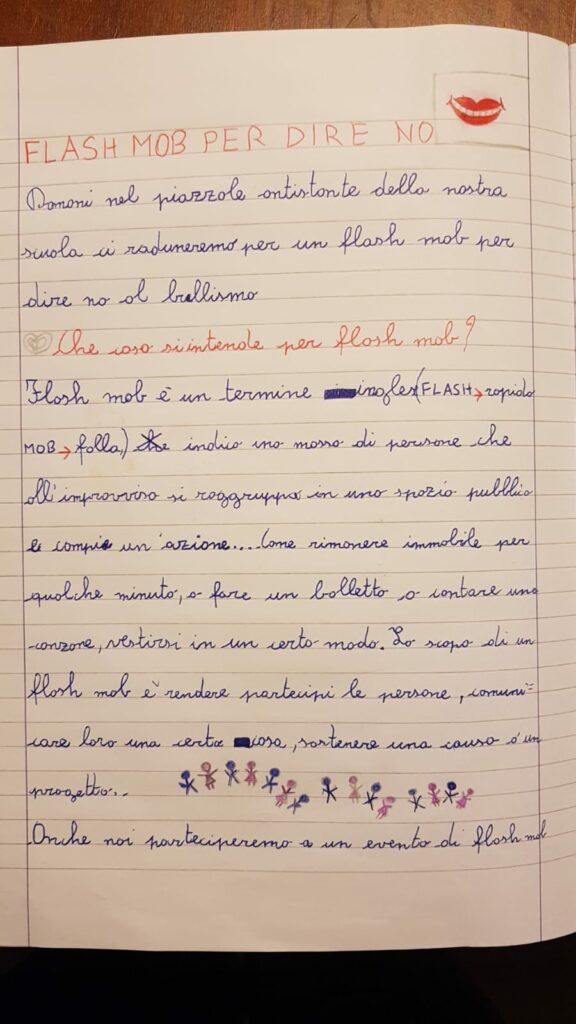 FLASH MOB PER DIRE NO
Domani nel piazzale antistante della nostra
scuola ci raduneremo per un flash mob per
dire no al bullismo
Che cosa si intende per flash mob?
Flash mob è un termine ingles (FLASH → rapido
MOB → folla) che indica una massa di persone che
all'improvviso si raggruppa in uno spazio pubblico
e compie un'azione.... Come rimanere immobile per
qualche minuto, o fare un balletto o cantare una
canzone, vestirsi in un certo modo. Lo scopo di un
flash mob è rendere partecipi le persone, comuni=
care loro una certa cosa, sostenere una causa o un
progetto..
Anche noi parteciperemo a un evento di flash mob